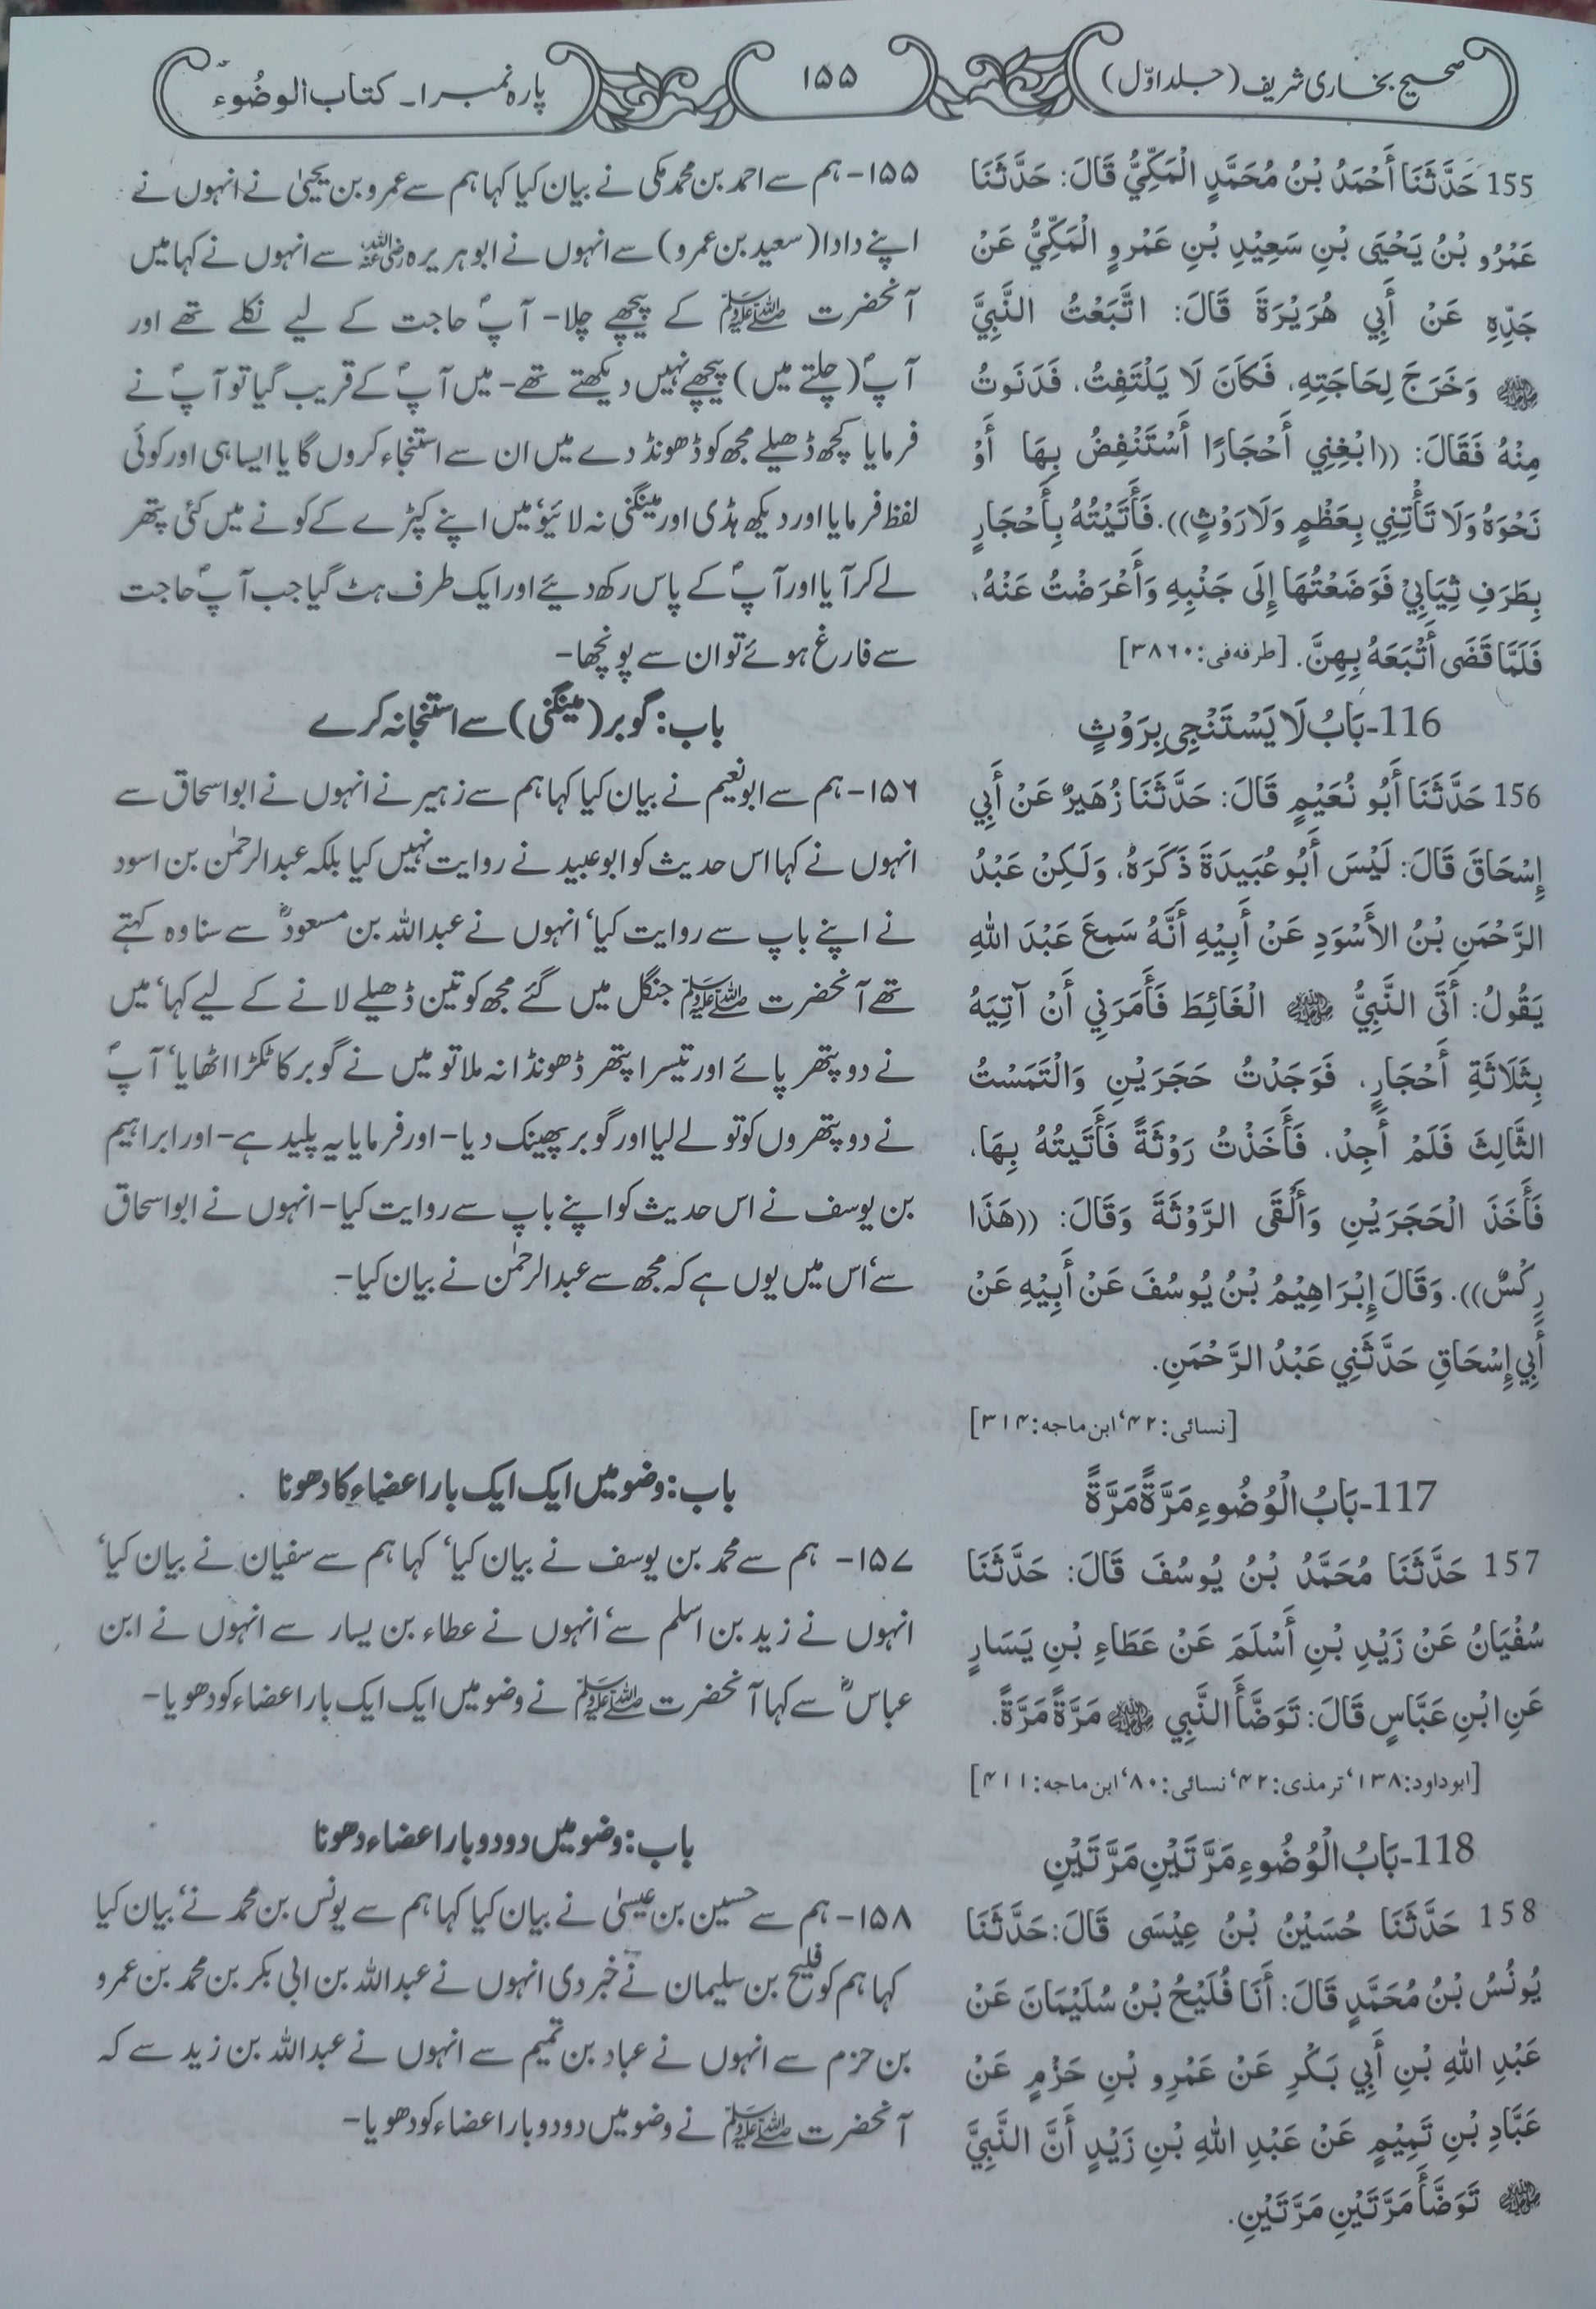 صحیح بخاری شریف (جلد اوّل)
۱۵۵
پارہ نمبر ۱۔ کتاب الوضُوء
155 حَدَّثَنَا أَحْمَدُ بْنُ مُحَمَّدٍ الْمَكِّيُّ قَالَ: حَدَّثَنَا
عَمْرُو بْنُ يَحْيَى بْنِ سَعِيْدِ بْنِ عَمْرٍو الْمَكِّيُّ عَنْ
جَدِّهِ عَنْ أَبِي هُرَيْرَةَ قَالَ: اتَّبَعْتُ النَّبِيَّ
ﷺ وَخَرَجَ لِحَاجَتِهِ، فَكَانَ لَا يَلْتَفِتُ، فَدَنَوتُ
مِنْهُ فَقَالَ: ((ابْغِنِي أَحْجَارًا أَسْتَنْفِضُ بِهَا أَوْ
نَحْوَهُ وَلَا تَأْتِنِي بِعَظْمٍ وَلَا رَوْثٍ)). فَأَتَيْتُهُ بِأَحْجَارٍ
بِطَرَفِ ثِيَابِيْ فَوَضَعْتُهَا إِلَى جَنْبِهِ وَأَعْرَضْتُ عَنْهُ،
فَلَمَّا قَضَى أَتْبَعَهُ بِهِنَّ. [طرفه فی: ۳۸۶۰]
116-بَابُ لَا يَسْتَنْجِي بِرَوْثٍ
156 حَدَّثَنَا أَبُو نُعَيْمٍ قَالَ: حَدَّثَنَا زُهَيرٌ عَنْ أَبِي
إِسْحَاقَ قَالَ: لَيْسَ أَبُو عُبَيدَةَ ذَكَرَهُ، وَلَكِنْ عَبْدُ
الرَّحْمَنِ بْنُ الأَسْوَدِ عَنْ أَبِيْهِ أَنَّهُ سَمِعَ عَبْدَ اللهِ
يَقُولُ: أَتَى النَّبِيُّ ﷺ الْغَائِطَ فَأَمَرَنِي أَنْ آتِيَهُ
بِثَلَاثَةِ أَحْجَارٍ، فَوَجَدْتُ حَجَرَيْنِ وَالْتَمَسْتُ
الثَّالِثَ فَلَمْ أَجِدْ، فَأَخَذْتُ رَوْثَةً فَأَتَيتُهُ بِهَا،
فَأَخَذَ الْحَجَرَيْنِ وَأَلْقَى الرَّوْثَةَ وَقَالَ: ((هَذَا
رِكْسٌ)). وَقَالَ إِبْرَاهِيْمُ بْنُ يُوسُفَ عَنْ أَبِيْهِ عَنْ
أَبِي إِسْحَاقِ حَدَّثَنِي عَبْدُ الرَّحْمَنِ.
[نسائی: ۴۲، ابن ماجه: ۳۱۴]
117-بَابُ الْوُضُوءِ مَرَّةً مَرَّةً
157 حَدَّثَنَا مُحَمَّدُ بْنُ يُوسُفَ قَالَ: حَدَّثَنَا
سُفْيَانُ عَنْ زَيْدِ بْنِ أَسْلَمَ عَنْ عَطَاءِ بْنِ يَسَارٍ
عَنِ ابْنِ عَبَّاسٍ قَالَ: تَوَضَّأَ النَّبِي ﷺ مَرَّةً مَرَّةً.
[ابوداود: ۱۳۸، ترمذی: ۴۲، نسائی: ۸۰، ابن ماجه: ۴۱۱]
118-بَابُ الْوُضُوءِ مَرَّتَيْنِ مَرَّتَيْنِ
158 حَدَّثَنَا حُسَيْنُ بْنُ عِيْسَى قَالَ: حَدَّثَنَا
يُونُسُ بْنُ مُحَمَّدٍ قَالَ: أَنَا فُلَيْحُ بْنُ سُلَيْمَانَ عَنْ
عَبْدِ اللهِ بْنِ أَبِي بَكْرِ عَنْ عَمْرِو بْنِ حَزْمٍ عَنْ
عَبَّادِ بْنِ تَمِيْمٍ عَنْ عَبْدِ اللهِ بْنِ زَيْدٍ أَنَّ النَّبِيَّ
ﷺ تَوَضَّأَ مَرَّتَيْنِ مَرَّتَيْنِ.
۱۵۵- ہم سے احمد بن محمد مکی نے بیان کیا کہا ہم سے عمرو بن یحییٰ نے انہوں نے
اپنے دادا (سعید بن عمرو) سے انہوں نے ابو ہریرہ رضی اللہ عنہ سے انہوں نے کہا میں
آنحضرت ﷺ کے پیچھے چلا- آپؐ حاجت کے لیے نکلے تھے اور
آپؐ (چلتے میں) پیچھے نہیں دیکھتے تھے- میں آپؐ کے قریب گیا تو آپؐ نے
فرمایا کچھ ڈھیلے مجھ کو ڈھونڈ دے میں ان سے استنجاء کروں گا یا ایسا ہی اور کوئی
لفظ فرمایا اور دیکھ ہڈی اور مینگنی نہ لائیو، میں اپنے کپڑے کے کونے میں کئی پتھر
لے کر آیا اور آپؐ کے پاس رکھ دیئے اور ایک طرف ہٹ گیا جب آپؐ حاجت
سے فارغ ہوئے تو ان سے پونچھا-
باب: گوبر (مینگنی) سے استنجا نہ کرے
۱۵۶- ہم سے ابو نعیم نے بیان کیا کہا ہم سے زہیر نے انہوں نے ابو اسحاق سے
انہوں نے کہا اس حدیث کو ابو عبید نے روایت نہیں کیا بلکہ عبدالرحمٰن بن اسود
نے اپنے باپ سے روایت کیا، انہوں نے عبداللہ بن مسعودؓ سے سنا وہ کہتے
تھے آنحضرت ﷺ جنگل میں گئے مجھ کو تین ڈھیلے لانے کے لیے کہا، میں
نے دو پتھر پائے اور تیسرا پتھر ڈھونڈا نہ ملا تو میں نے گوبر کا ٹکڑا اٹھایا، آپؐ
نے دو پتھروں کو تو لے لیا اور گوبر پھینک دیا- اور فرمایا یہ پلید ہے- اور ابراہیم
بن یوسف نے اس حدیث کو اپنے باپ سے روایت کیا- انہوں نے ابو اسحاق
سے، اس میں یوں ہے کہ مجھ سے عبدالرحمٰن نے بیان کیا-
باب: وضو میں ایک ایک بار اعضاء کا دھونا
۱۵۷- ہم سے محمد بن یوسف نے بیان کیا، کہا ہم سے سفیان نے بیان کیا،
انہوں نے زید بن اسلم سے، انہوں نے عطاء بن یسار سے انہوں نے ابن
عباسؓ سے کہا آنحضرت ﷺ نے وضو میں ایک ایک بار اعضاء کو دھویا-
باب: وضو میں دو دو بار اعضاء دھونا
۱۵۸- ہم سے حسین بن عیسیٰ نے بیان کیا کہا ہم سے یونس بن محمد نے، بیان کیا
کہا ہم کو فلیح بن سلیمان نے خبر دی انہوں نے عبداللہ بن ابی بکر بن محمد بن عمرو
بن حزم سے انہوں نے عباد بن تمیم سے انہوں نے عبداللہ بن زید سے کہ
آنحضرت ﷺ نے وضو میں دو دو بار اعضاء کو دھویا-